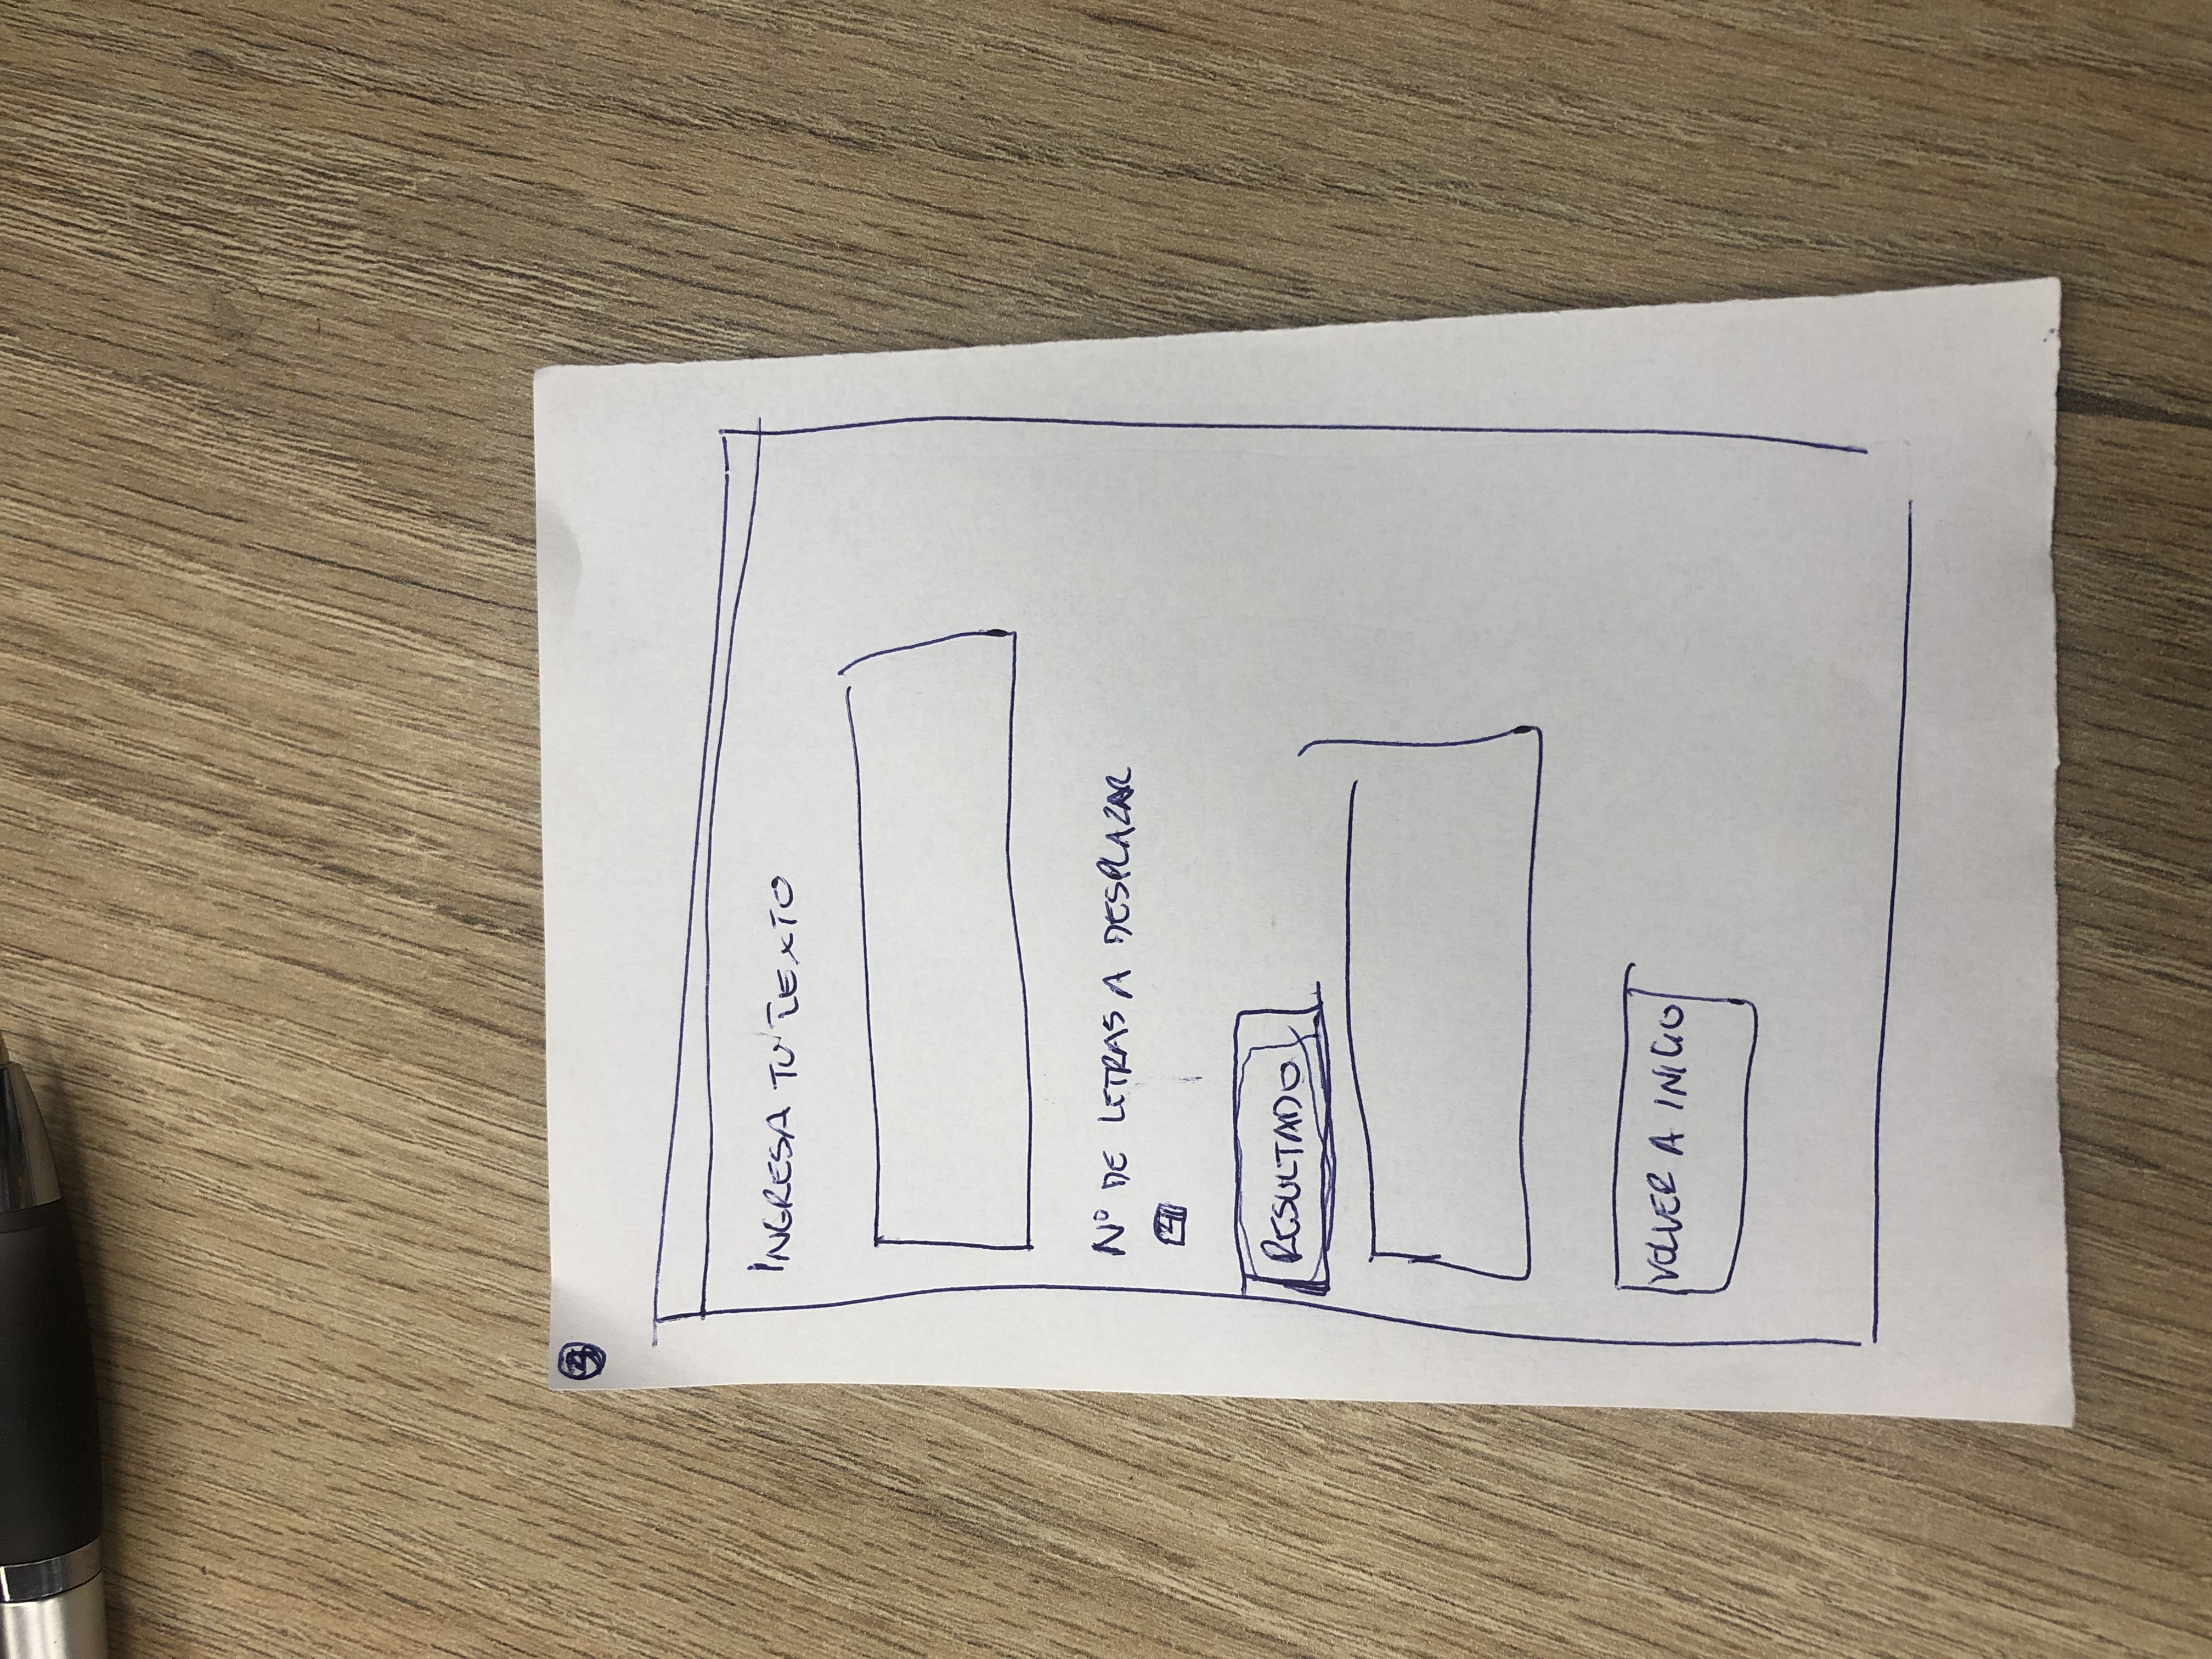 INGRESA TU TEXTO
Nº DE LETRAS A DESPLAZAR
RESULTADO
VOLVER A INICIO